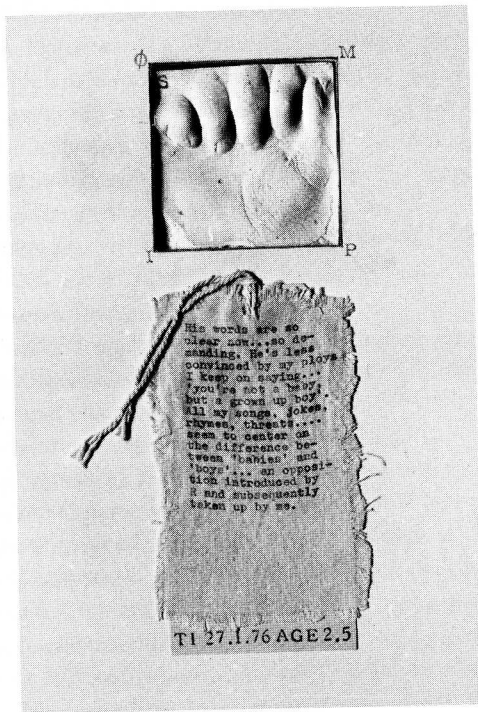 Ø M
S
I P
His words are so
clear now...so de-
manding. He's less
convinced by my ploys
I keep on saying...
'you're not a baby,
but a grown up boy'.
All my songs, jokes,
rhymes, threats....
seem to center on
the difference be-
tween 'babies' and
'boys'... an opposi-
tion introduced by
R and subsequently
taken up by me.
TI 27.1.76 AGE 2.5